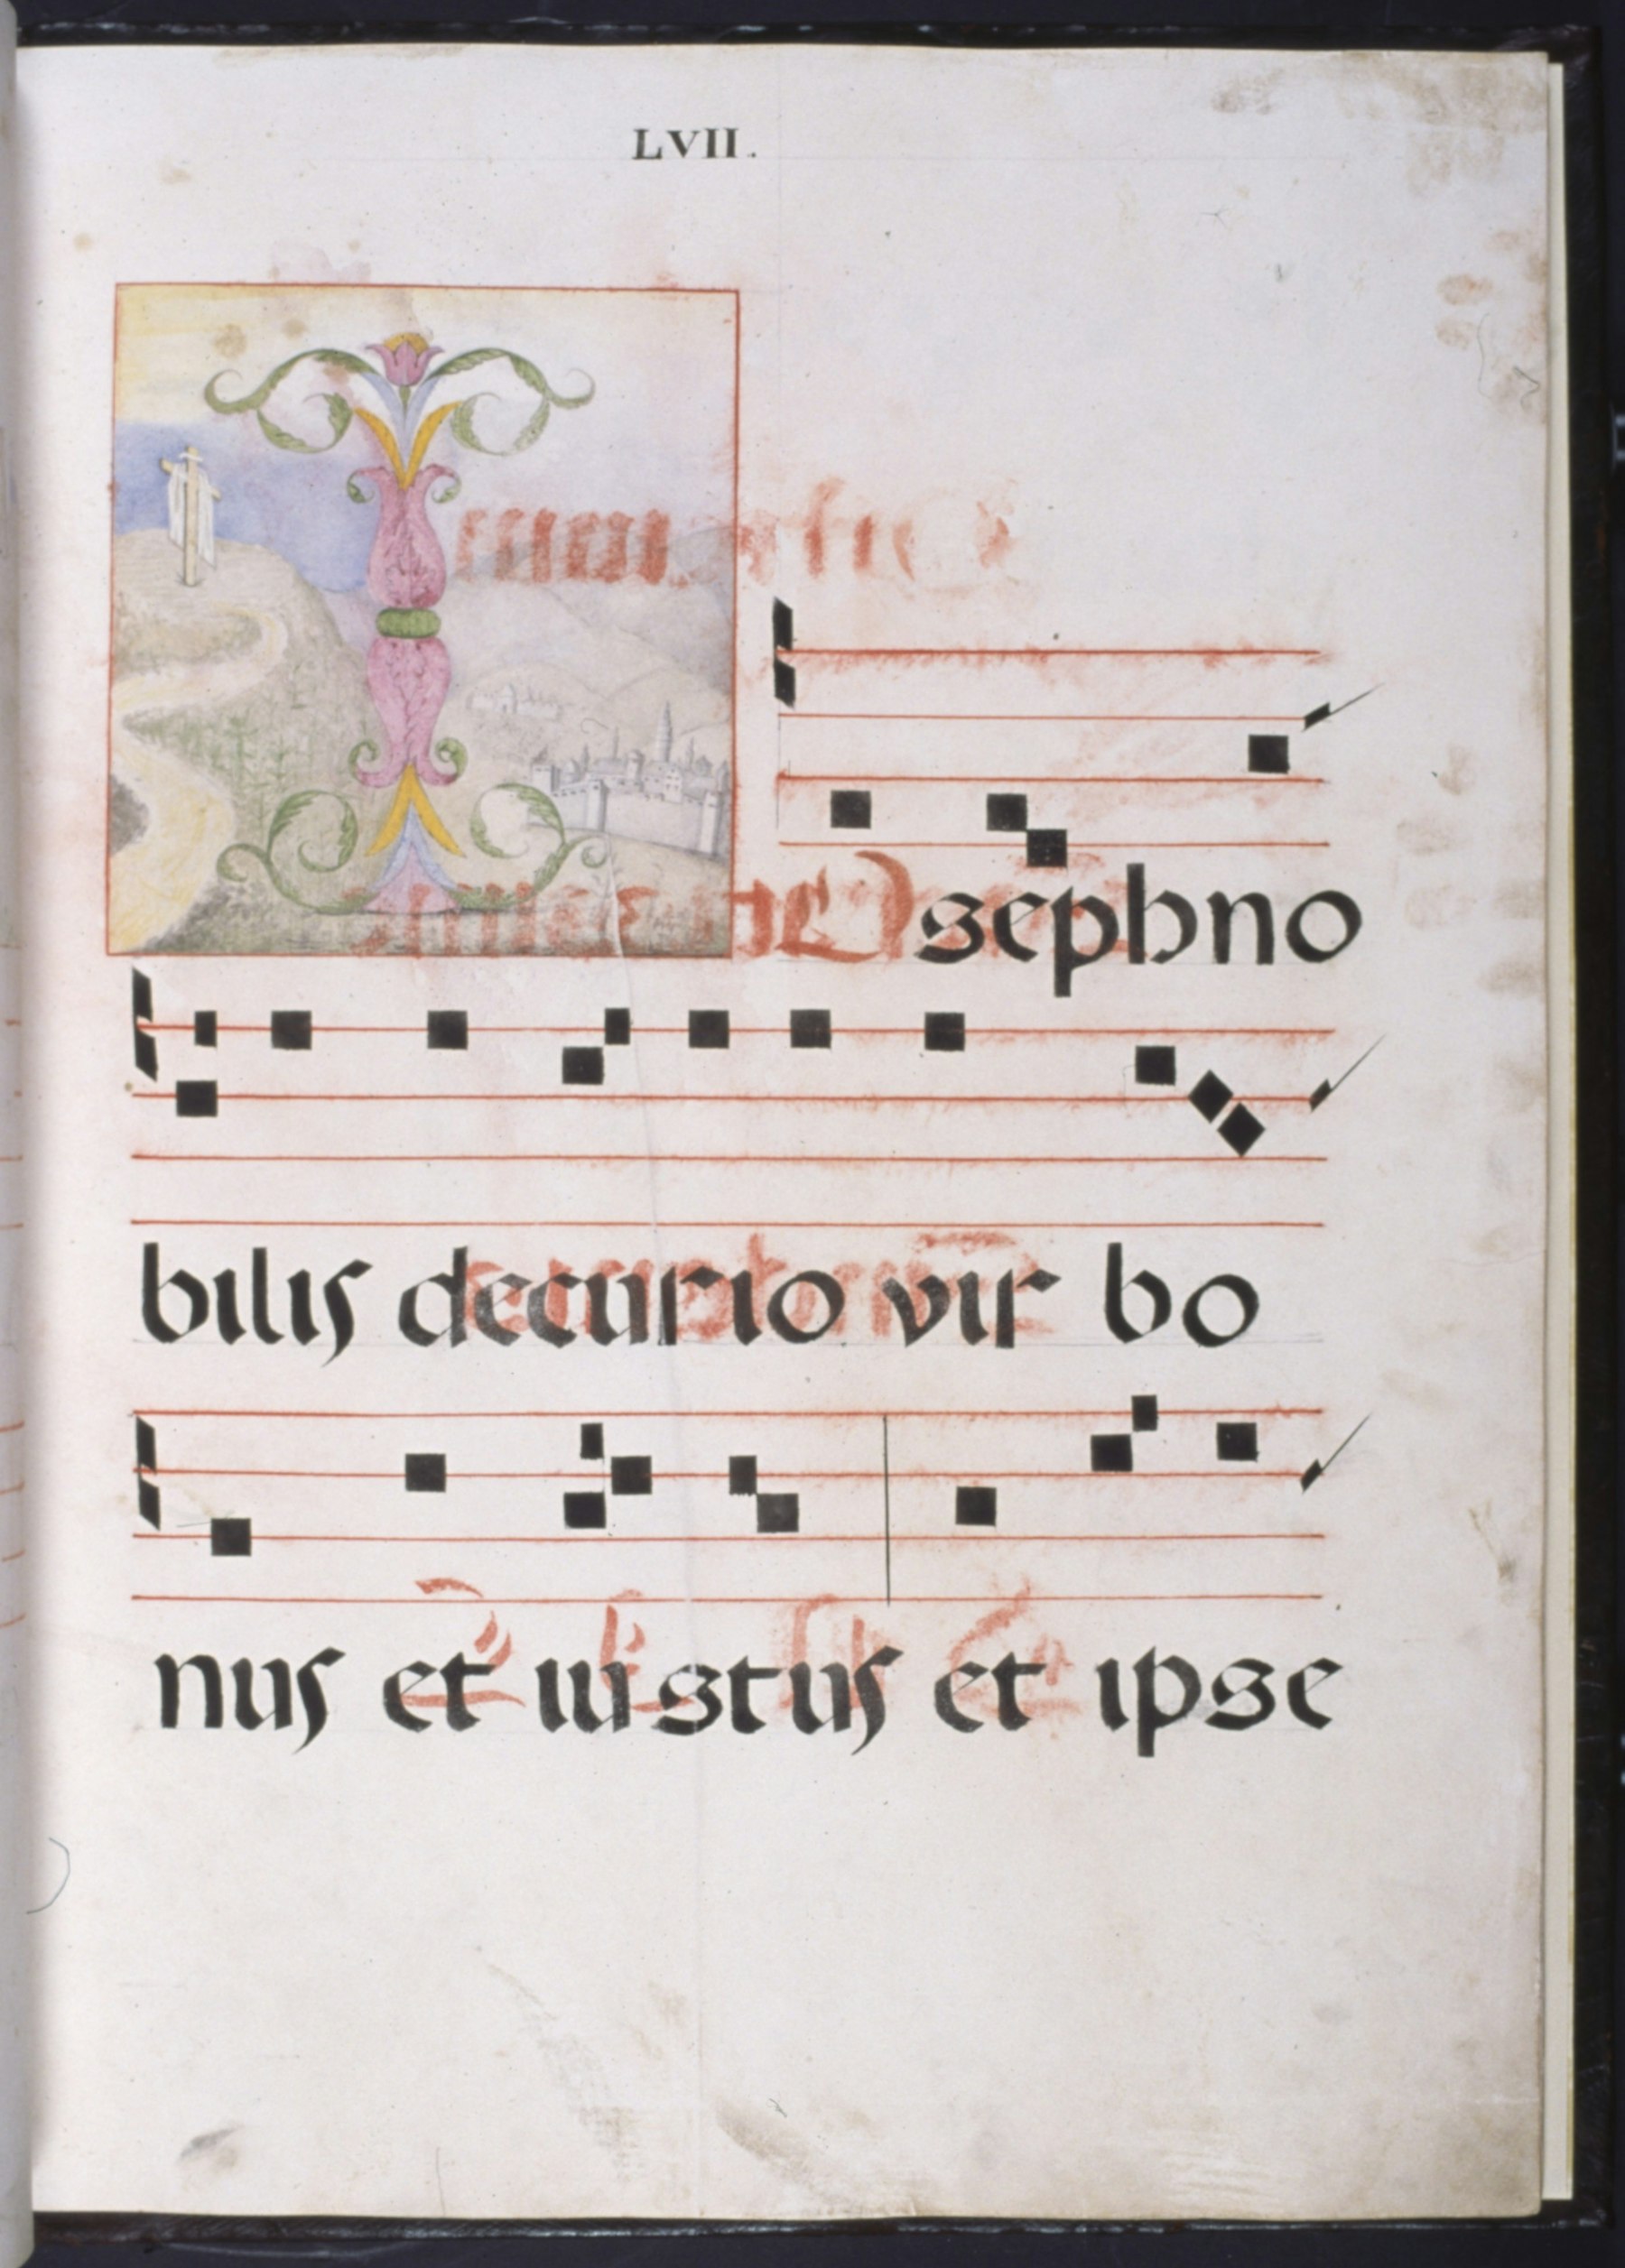 LVII.
I
sephno
bilis decurio vir bo
nus et iustus et ipse